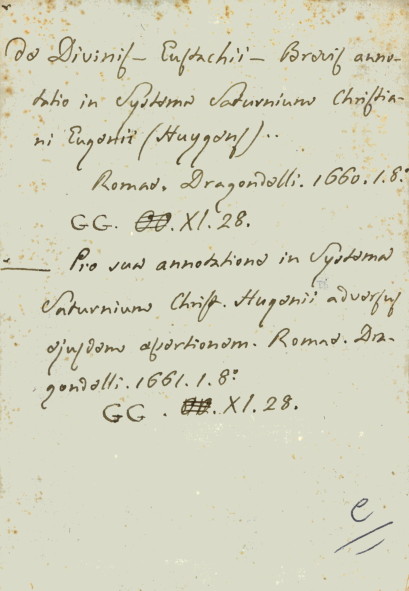 de Divinis - Eustachii - Brevis anno-
tatio in Systema Saturnium Christia-
ni Eugenii (Huygens)..
Romae. Dragondelli. 1660. 1. 8.º
GG. XI. 28.
— Pro sua annotatione in Systema
Saturnium Christ. Hugenii adversus
ejusdem assertionem. Romae. Dra-
gondelli. 1661. 1. 8º
GG. XI. 28.
e